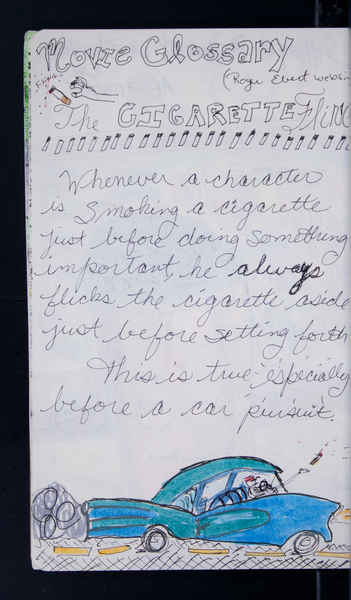 Movie Glossary
(Roger Ebert websi
Fling
The CIGARETTE Fling
Whenever a character
is smoking a cigarette
just before doing something
important, he always
flicks the cigarette aside
just before setting forth
This is true especially
before a car pursuit.